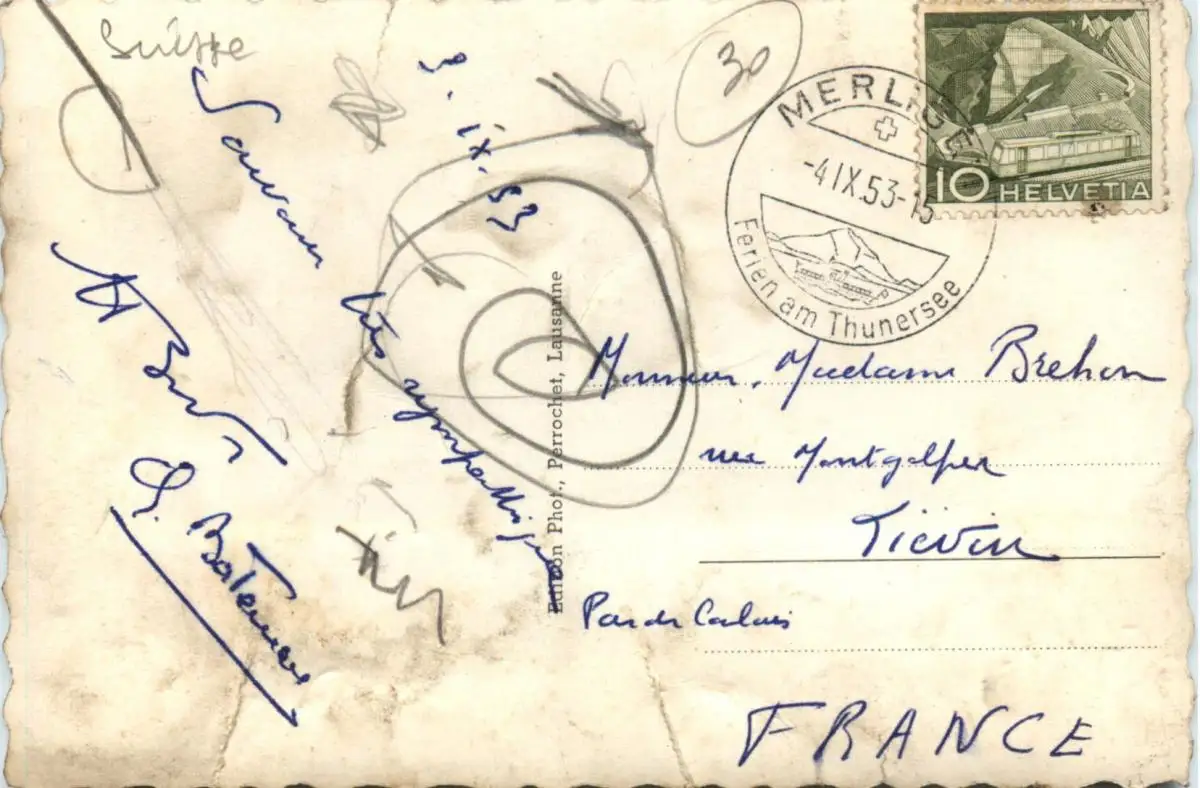 Suisse
30
3.IX.53
Souvenir
très sympathique
G. Bateman
Edition Phot., Perrochet, Lausanne
MERLIGEN
-4IX.53-15
Ferien am Thunersee
10 HELVETIA
Monsieur, Madame Brehon
rue Montgolfier
Liévin
Pas de Calais
FRANCE